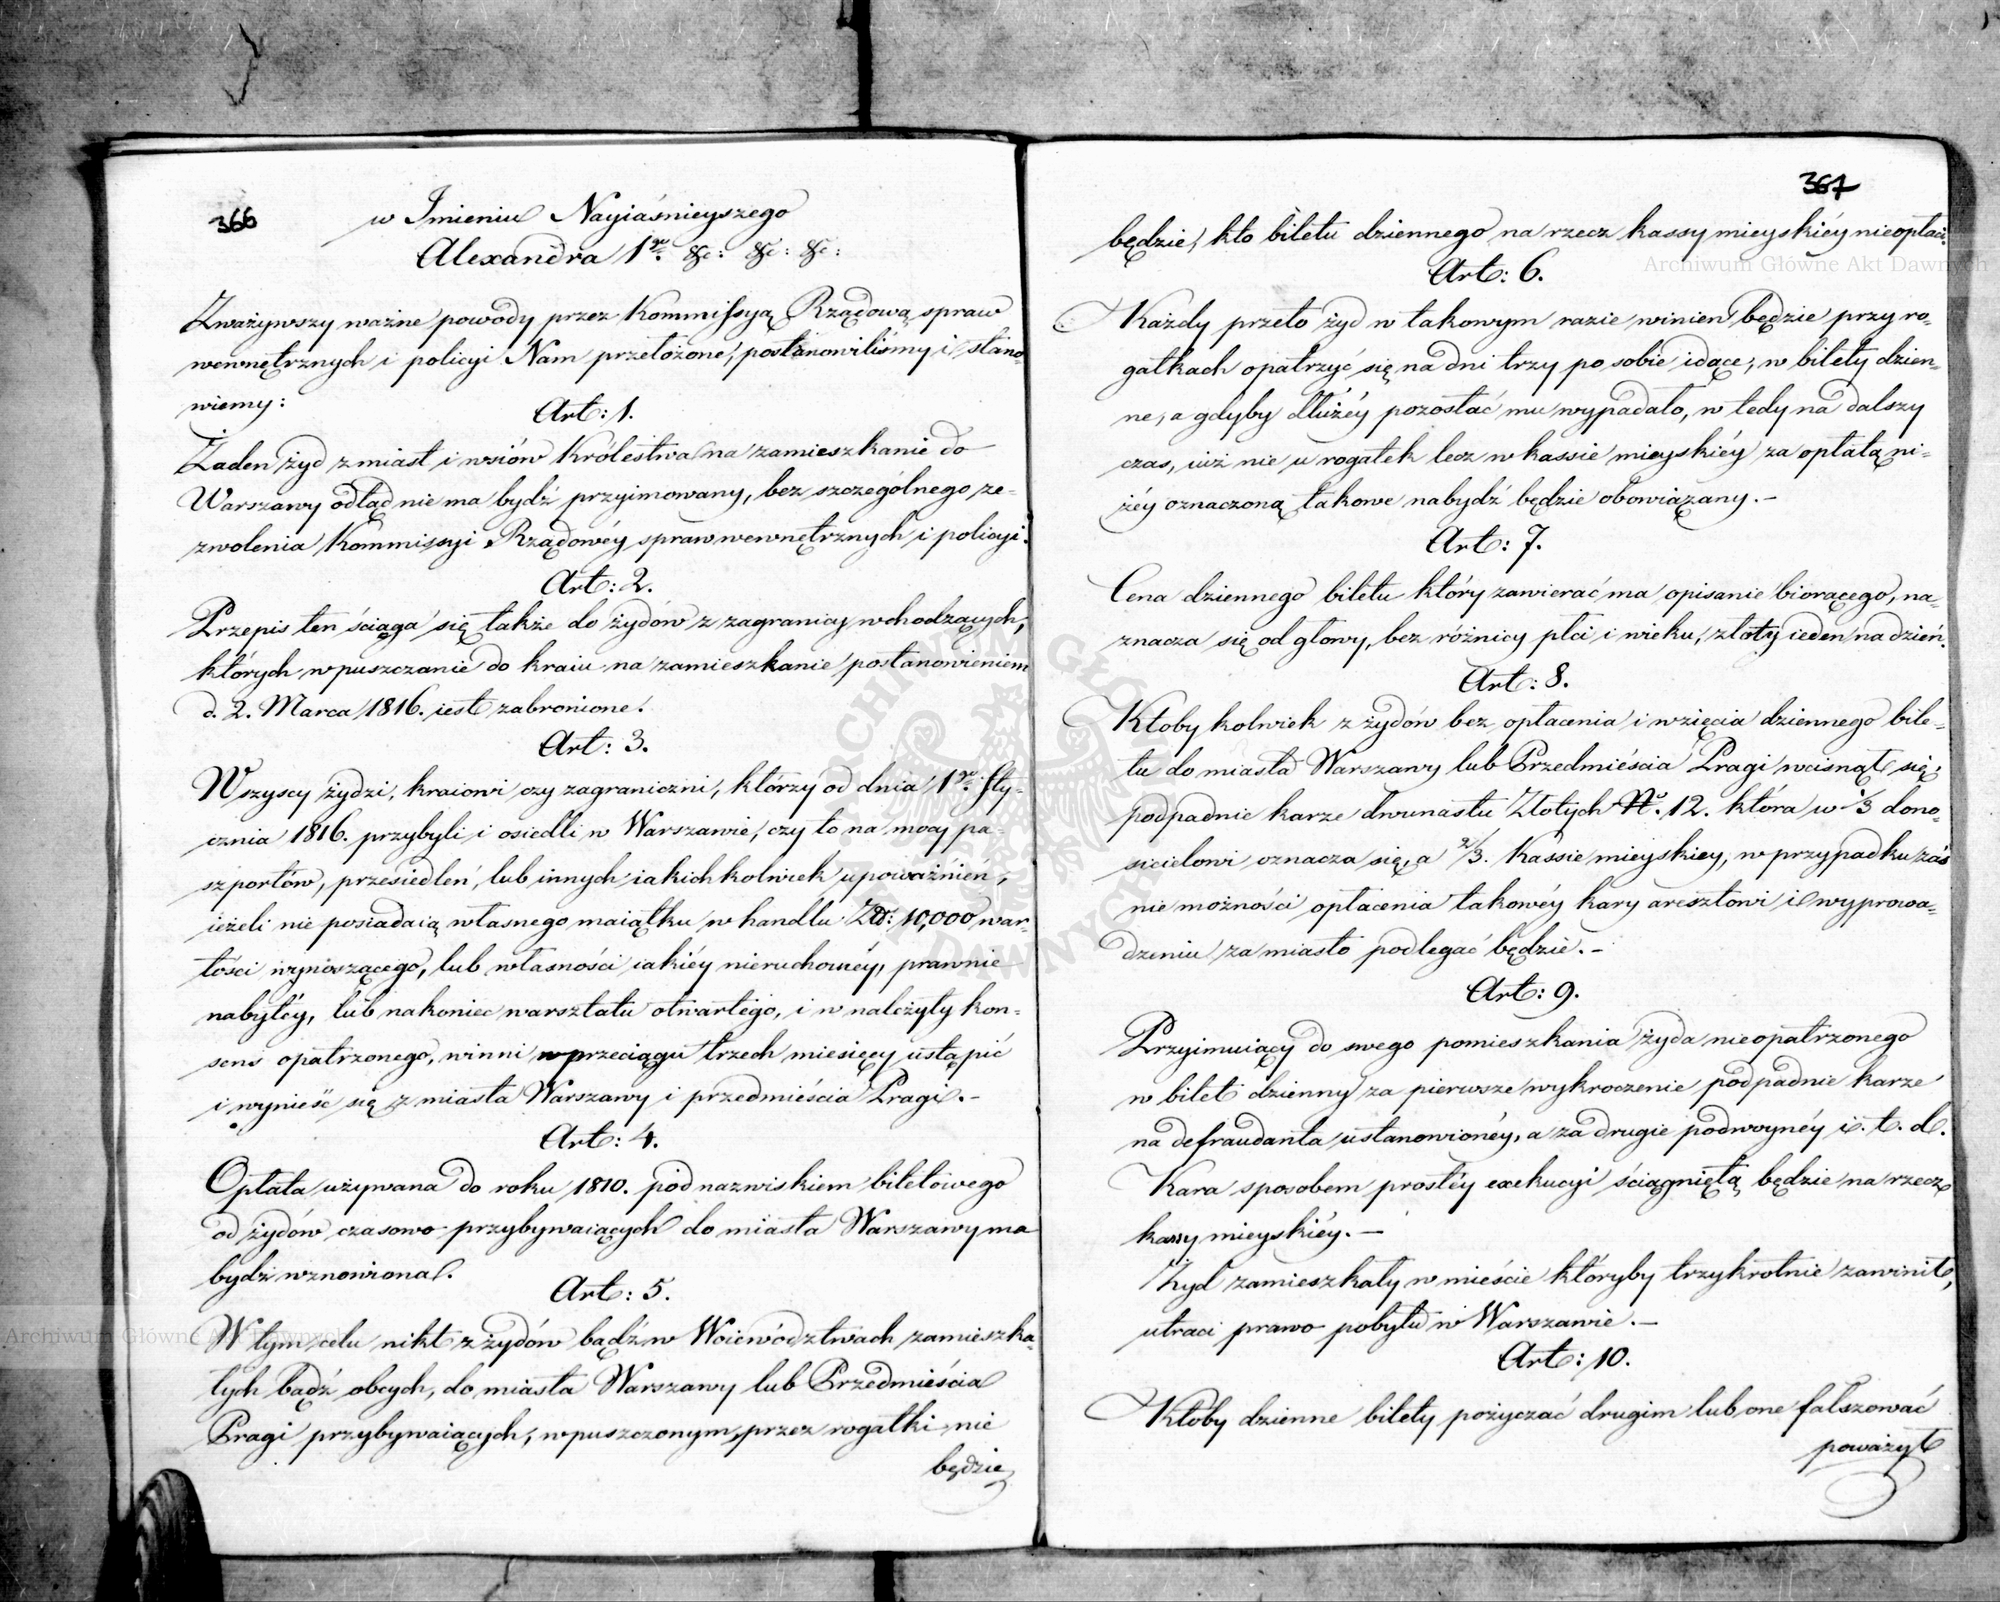 366
w Imieniu Nayiaśnieyszego
Alexandra 1go &c: &c: &c:
Zważywszy ważne powody przez Kommissyą Rządową spraw
wewnętrznych i policyi Nam przełożone, postanowiliśmy i stano-
wiemy:
Art: 1.
Żaden żyd z miast i wsiów Królestwa na zamieszkanie do
Warszawy odtąd nie ma bydź przyimowany, bez szczególnego ze-
zwolenia Kommissyi Rządowéy spraw wewnętrznych i policyi.
Art: 2.
Przepis ten ściąga się także do żydów z zagranicy wchodzących,
których wpuszczanie do kraiu na zamieszkanie postanowieniem
d. 2. Marca 1816. iest zabronione.
Art: 3.
Wszyscy żydzi, kraiowi czy zagraniczni, którzy od dnia 1go Sty-
cznia 1816. przybyli i osiedli w Warszawie, czy to na mocy pa-
szportów, przesiedleń, lub innych iakichkolwiek upoważnień,
ieżeli nie posiadaią własnego maiątku w handlu Zł: 10,000 war-
tości wynoszącego, lub własności iakiéy nieruchoméy, prawnie
nabytéy, lub nakoniec warsztatu otwartego, i w należyty kon-
sens opatrzonego, winni w przeciągu trzech miesięcy ustąpić
i wynieść się z miasta Warszawy i przedmieścia Pragi.-
Art: 4.
Opłata używana do roku 1810. pod nazwiskiem biletowego
od żydów czasowo przybywaiących do miasta Warszawy ma
bydź wznowiona.
Art: 5.
W tym celu nikt z żydów bądź w Woiewództwach zamieszka-
łych bądź obcych, do miasta Warszawy lub Przedmieścia
Pragi przybywaiących, wpuszczonym przez rogatki nie
będzie
367
będzie, kto biletu dziennego na rzecz kassy mieyskiéy nieopłaci.
Art: 6.
Każdy przeto żyd w takowym razie winien będzie przy ro-
gatkach opatrzyć się na dni trzy po sobie idące, w bilety dzien-
ne, a gdyby dłużéy pozostać mu wypadało, w tedy na dalszy
czas, iuż nie u rogatek lecz w kassie mieyskiéy za opłatą ni-
żéy oznaczoną takowe nabydź będzie obowiązany.-
Art: 7.
Cena dziennego biletu który zawierać ma opisanie biorącego, na-
znacza się od głowy, bez różnicy płci i wieku, złoty ieden na dzień.
Art: 8.
Ktoby kolwiek z żydów bez opłacenia i wzięcia dziennego bile-
tu do miasta Warszawy lub Przedmieścia Pragi wcisnął się,
podpadnie karze dwunastu Złotych No. 12. która w 1/3 dono-
sicielowi oznacza się, a 2/3. Kassie mieyskiey, w przypadku zaś
nie możności opłacenia takowéy kary aresztowi i wyprowa-
dzeniu za miasto podlegać będzie.-
Art: 9.
Przyimuiący do swego pomieszkania żyda nieopatrzonego
w bilet dzienny za pierwsze wykroczenie podpadnie karze
na defraudanta ustanowionéy, a za drugie podwóynéy i. t. d.
Kara sposobem prostéy exekucyi ściągniętą będzie na rzecz
kassy mieyskiéy.-
Żyd zamieszkały w mieście któryby trzykrotnie zawinił,
utraci prawo pobytu w Warszawie.-
Art: 10.
Ktoby dzienne bilety pożyczać drugim lub one fałszować
poważył
Archiwum Główne Akt Dawnych
Archiwum Główne Akt Dawnych